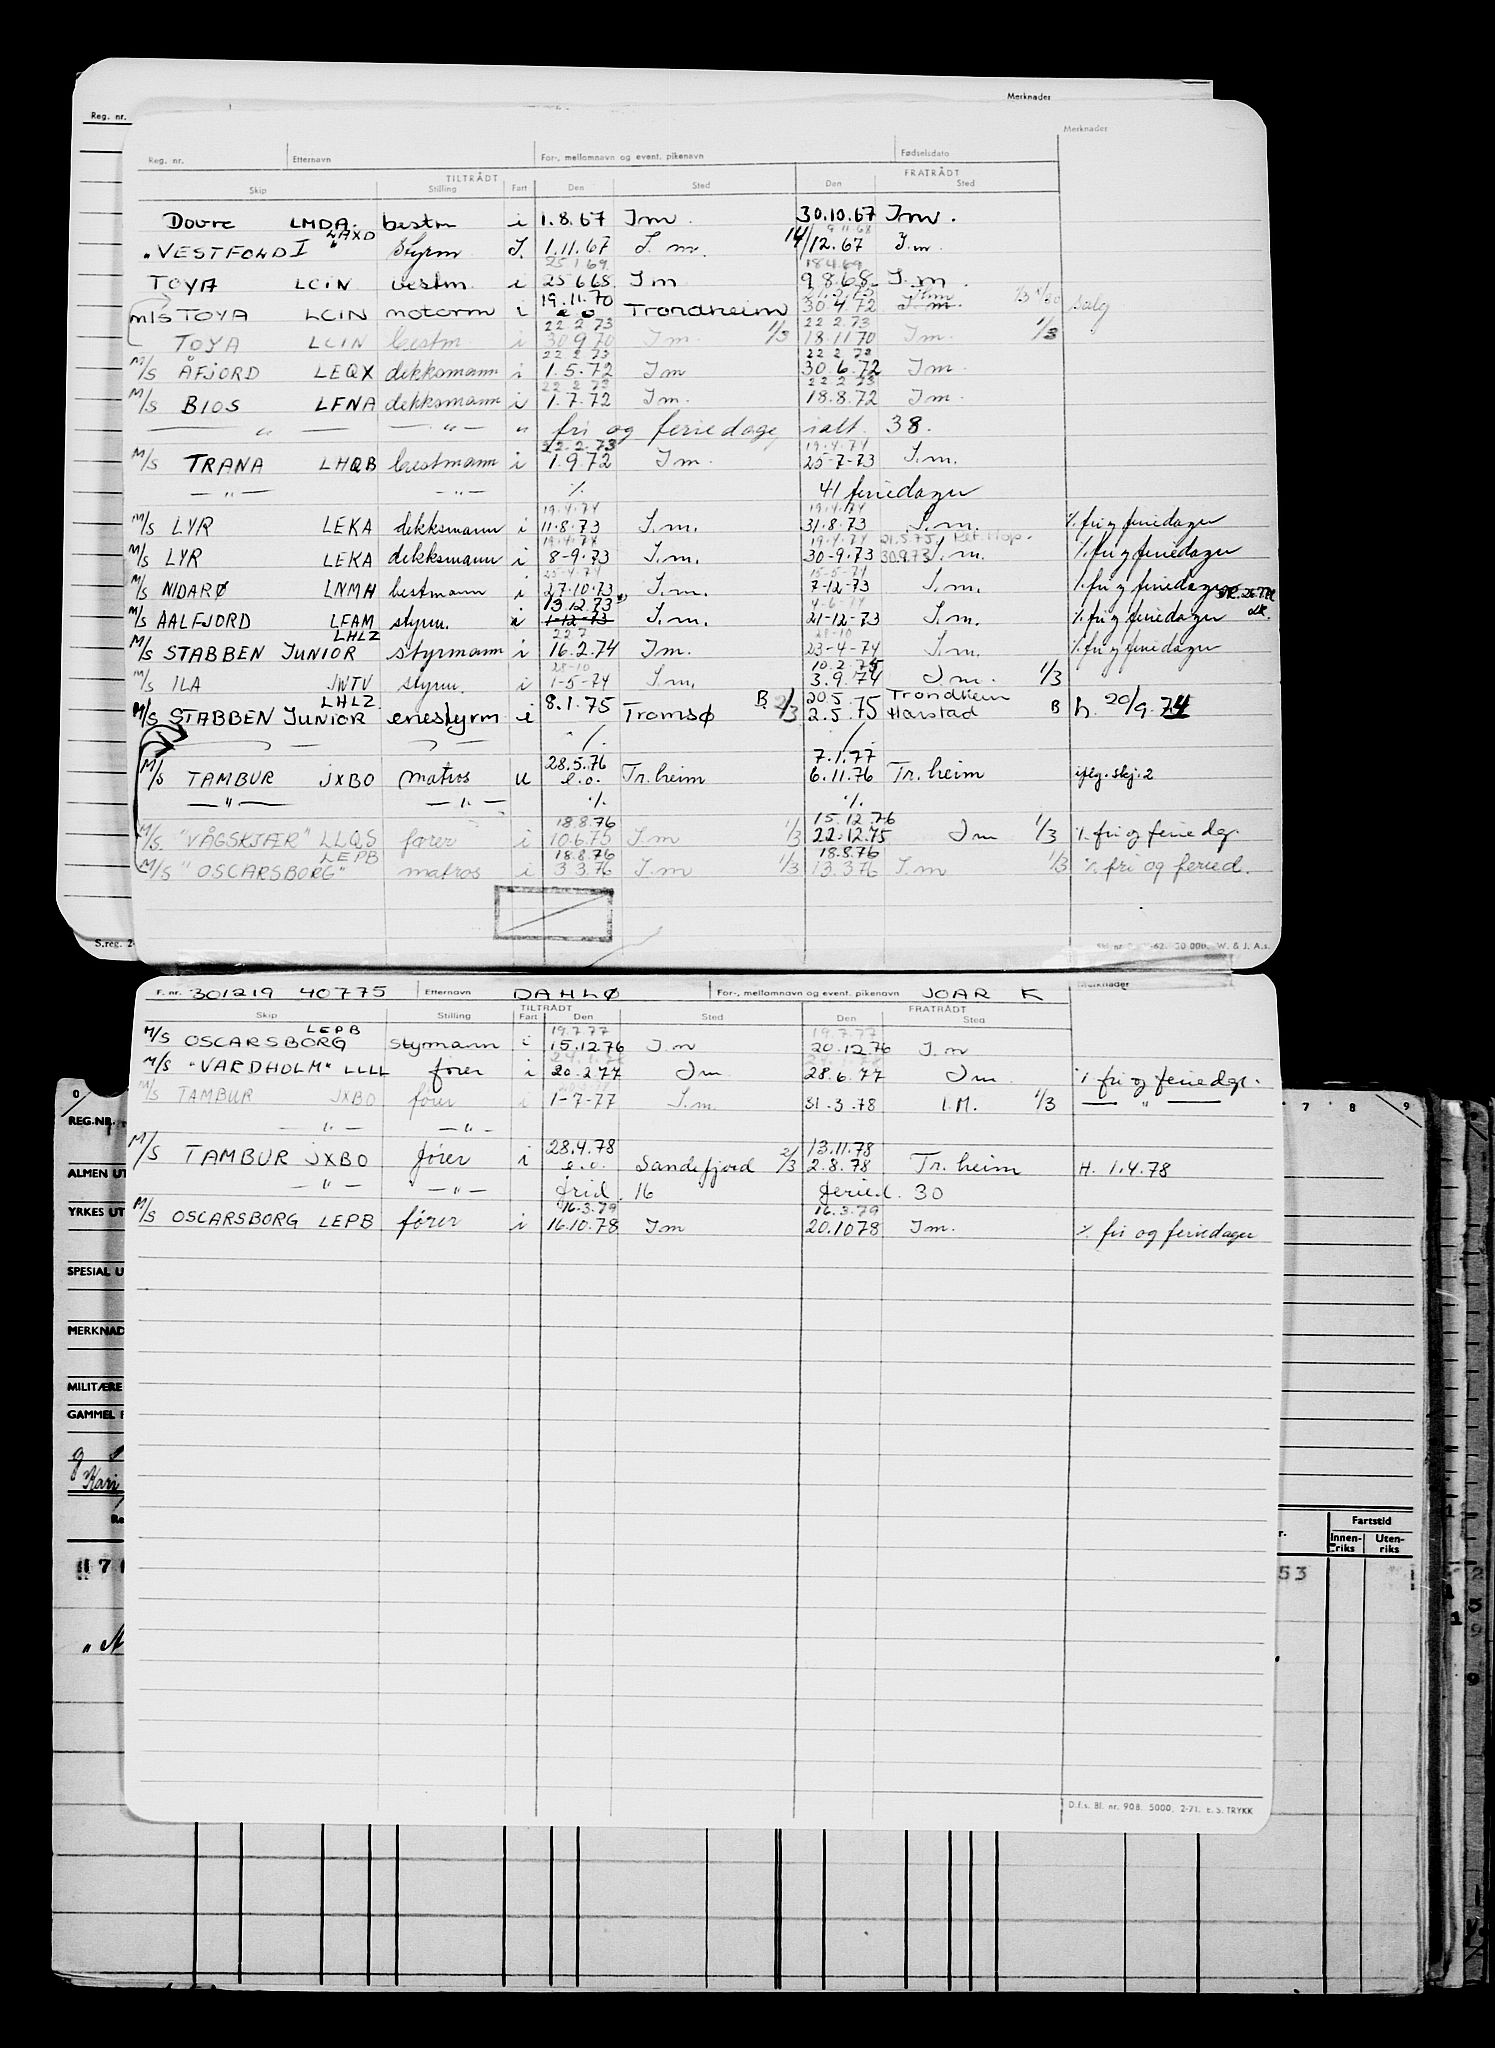 Merknader
Reg. nr.
Merknader
Reg. nr. Etternavn For-, mellomnavn og event. pikenavn Fødselsdato
TILTRÅDT FRATRÅDT
Skip Stilling Fart Den Sted Den Sted
Dovre LMDA. bestm i 1.8.67 Im. 30.10.67 Im.
LAXD 9 11 68
"VESTFOLD I" styrm I. 1.11.67 I. m. 14/12.67 I.m.
25 1 69 18 4 69
TOYA LCIN bestm. i 25 6 68 Im 9 8.68 I.m.
19.11.70
m/s TOYA LCIN motorm i e.o. Trondheim 30 4 72 I.m. salg
22 2 73 22 2 73
TOYA LCIN bestm. i 30 9 70 Im. 1/3 18.11 70 Im. 1/3
22 2 73 22 2 73
M/S ÅFJORD LEQX dekksmann i 1.5.72 Im 30.6.72 Im.
22 2 73 22 2 73
M/S BIOS LFNA dekksmann i 1.7.72 Im. 18.8.72 Im.
— " — — " — " fri og feriedage, ialt. 38.
22.2.73 19.4.74
M/S TRANA LHQB bestmann i 1.9.72 Im. 25-7-73 I.m.
— " — — " — ./. 41 feriedager
19.4.74 19.4.74
M/S LYR LEKA dekksmann i 11.8.73 I.m. 31.8.73 I.m. ./. fri og feriedager
19.4.74 19.4.74 21.5.75
M/S LYR LEKA dekksmann i 8-9-73 I.m. 30-9-73 30973 I.m. ./. fri og feriedager
25-4-74 15-5-74
M/S NIDARØ LNMH bestmann i 27.10.73 I.m. 7-12-73 I.m. ./. fri og feriedager
13.12.73 4-6-74
M/S AALFJORD LFAM styrm. i 1-12-73 I.m. 21-12-73 I.m. ./. fri og feriedager
LHLZ 22 7 28-10
M/S STABBEN JUNIOR styrmann i 16.2.74 Im. 23-4-74 I.m. ./. fri og feriedager
28-10 10.2.75
M/S ILA JWTV styrm. i 1-5-74 I.m. 3.9.74 I.m. 1/3
LHLZ 20.5.75 Trondheim
M/S STABBEN JUNIOR enestyrm i 8.1.75 Tromsø B 2/3 2.5.75 Harstad B h. 20/9.74
./. ./.
28.5.76 7.1.77
M/S TAMBUR JXBO matros u e.o. Tr.heim 6.11.76 Tr.heim iflg. skj. 2
— " — — " — ./. ./.
18.8.76 15.12.76
M/S. "VÅGSKJÆR" LLQS fører i 10.6.75 I.m 1/3 22.12.75 Im 1/3 ./. fri og ferie dgr.
LEPB 18.8.76 18.8.76
M/S "OSCARSBORG" matros i 3 3.76 I.m 1/3 13.3.76 I.m 1/3 ./. fri og feried.
S.reg. 2-
W. & J. A.s.
F. nr. 301219 40775 Etternavn DAHLØ For-, mellomnavn og event. pikenavn JOAR K Merknader
TILTRÅDT FRATRÅDT
Skip Stilling Fart Den Sted Den Sted
LEPB 19.7.77 19.7.77
M/S OSCARSBORG styrmann i 15.12.76 I.m 20.12.76 I.m
M/S "VARDHOLM" LLLL fører i 20.2.77 Im 28.6.77 Im ./. fri og feriedgr.
M/S TAMBUR JXBO fører i 1-7-77 I.m. 31.3.78 I.M. 1/3 — " —
— " — — " —
28.4.78 13.11.78
M/S TAMBUR JXBO fører i e.o. Sandefjord 2/3 2.8.78 Tr.heim H. 1.4.78
— " — — " — frid. 16 feried. 30
16.3.79 16.3.79
M/S OSCARSBORG LEPB fører i 16.10.78 Im 20.10 78 Im. ./. fri og feriedager
D.f.s. Bl. nr. 908. 5000. 2-71. E. S. TRYKK
0 7 8 9
REG.NR.
ALMEN UT
YRKES UT
SPESIAL U
MERKNAD
MILITÆRE
GAMMEL F
Kari
Re
r. Fartstid
Innen-riks Uten-riks
53